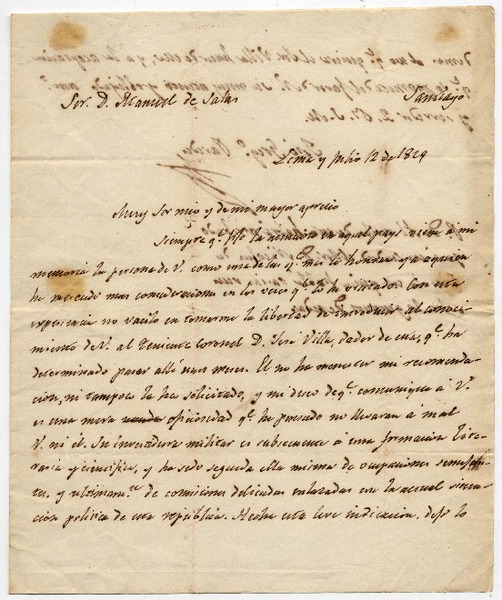 Sor. D. Manuel de Salas Santiago
Lima y Julio 12 de 1829
Muy Sor mio y de mi mayor aprecio
Siempre q.e la en aquel pays viene á mi
memoria la persona de V. como una de las q.e mas le honran y a quien
he merecido mas consideraciones en las veces q.e lo he visitado. Con esta
experiencia no vacilo en tomarme la libertad introducir al conoci-
miento de V. al Teniente Coronel D. José Villa, dador de esta, q.e ha
determinado pasar allí unos meses. El no ha menester mi recomenda-
cion, ni tampoco la ha solicitado, y mi deseo de q.e comunique á V.
es una mera oficiosidad q.e he pensado no llevaran á mal
V. ni él. Su investidura militar es subsecuente á una formacion lite-
raria y cientifica, y ha sido seguida ella misma de ocupaciones
y ultimam.te de comisiones delicadas enlazadas con la actual situa-
cion politica de esta republica. Hecha esta leve indicacion, dejo lo